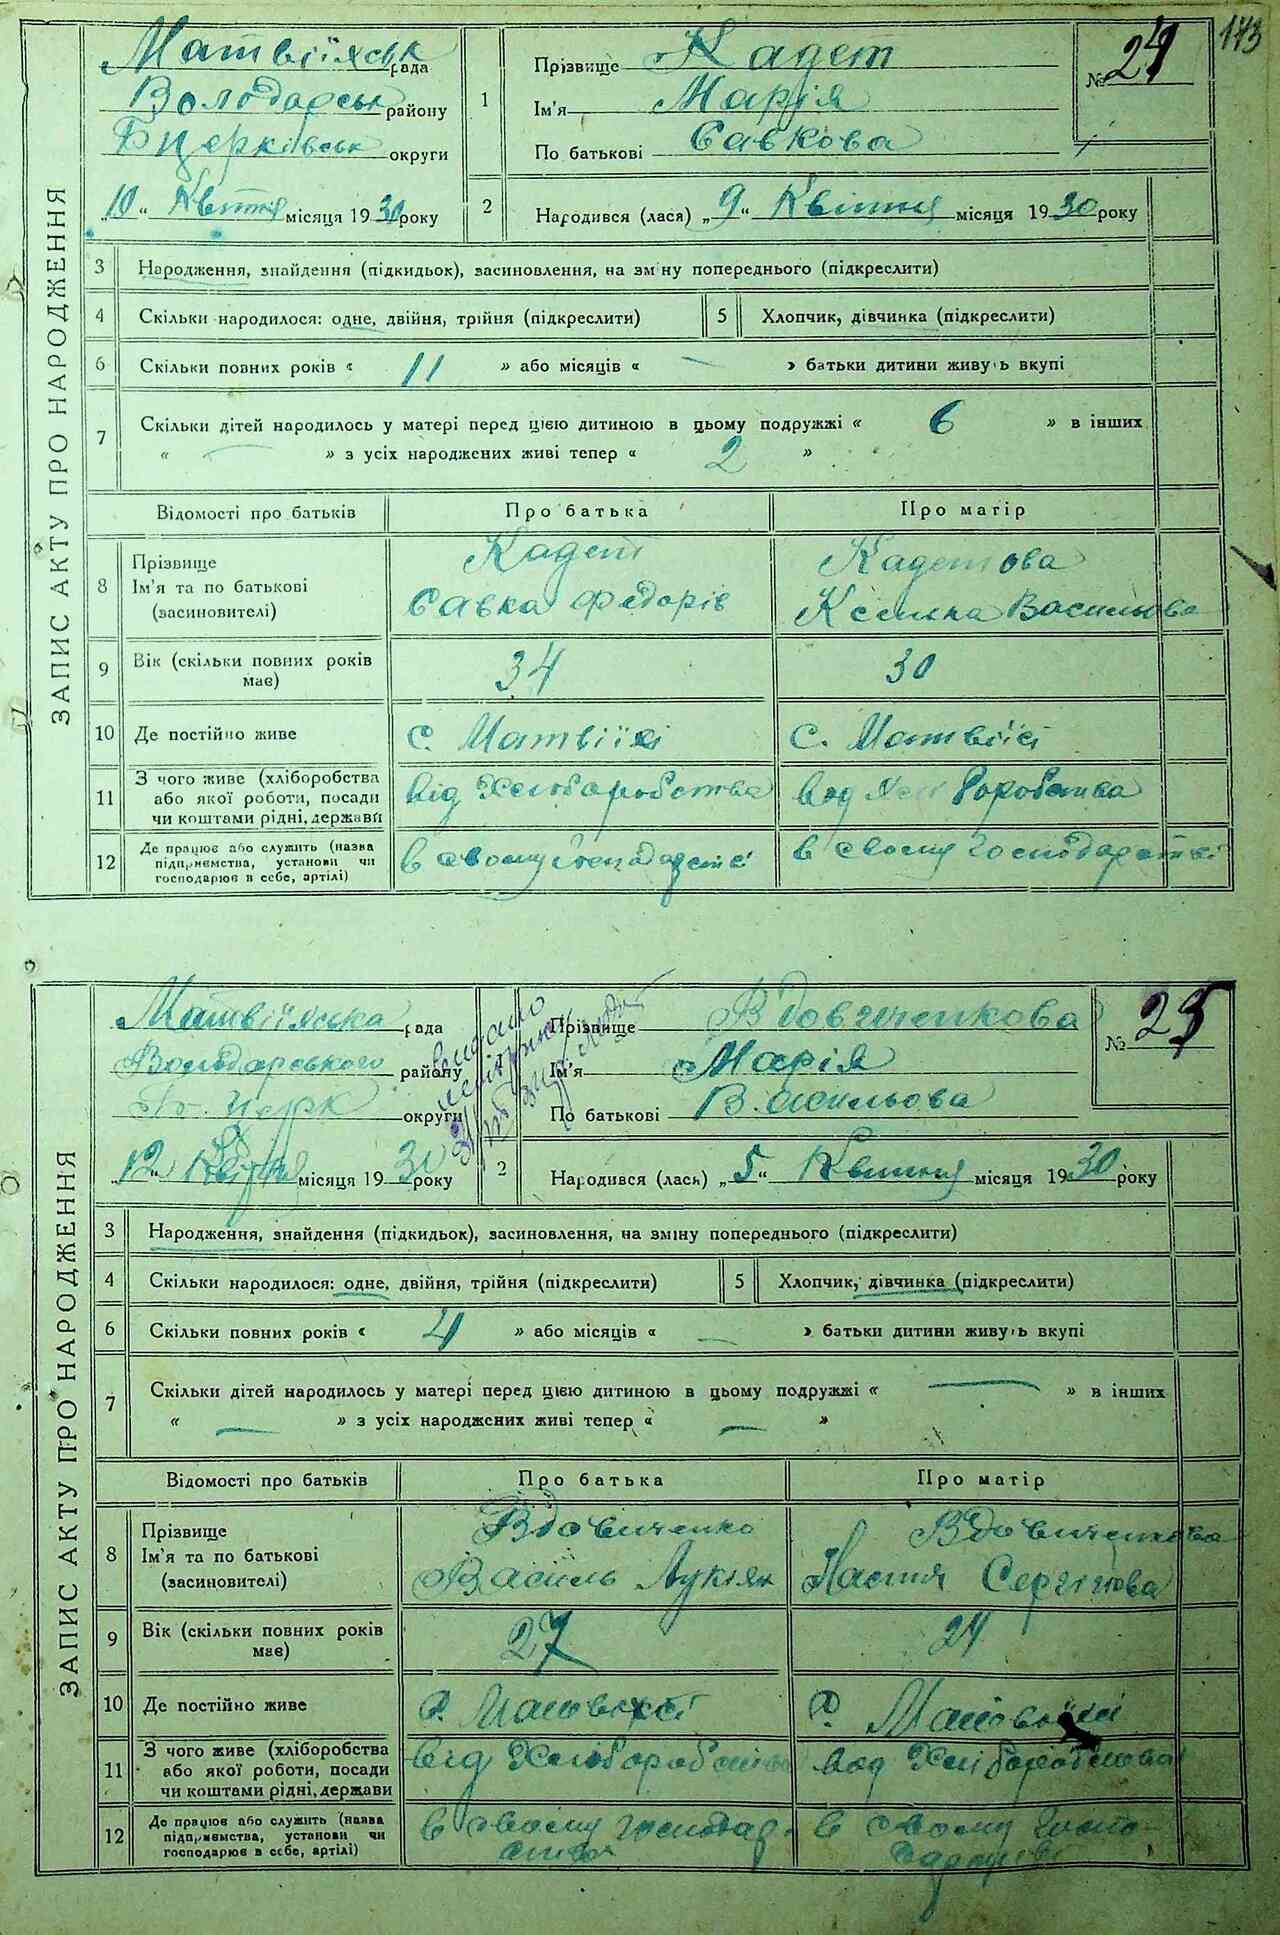 173
ЗАПИС АКТУ ПРО НАРОДЖЕННЯ
Матвіїхськ рада
Володарськ району
Бцерківськ округи
„10“ Квітня місяця 1930 року
1
Прізвище Кадет
Ім'я Марія
По батькові Савкова
№ 24
2
Народився (лася) „9“ Квітня місяця 1930 року
3 Народження, знайдення (підкидьок), засиновлення, на зміну попереднього (підкреслити)
4 Скільки народилося: одне, двійня, трійня (підкреслити)
5 Хлопчик, дівчинка (підкреслити)
6 Скільки повних років « 11 » або місяців « — » батьки дитини живуть вкупі
7 Скільки дітей народилось у матері перед цією дитиною в цьому подружжі « 6 » в інших
« — » з усіх народжених живі тепер « 2 »
Відомості про батьків Про батька Про матір
8 Прізвище Кадет Кадетова
Ім'я та по батькові Савка Федорів Васильова
(засиновителі)
9 Вік (скільки повних років має) 34 30
10 Де постійно живе с. Матвіїхі с. Матвіїсі
11 З чого живе (хліборобства або якої роботи, посади чи коштами рідні, держави від Хліборобства вод Хліборобства
12 Де працює або служить (назва підприємства, установи чи господарює в себе, артілі) в своему господарстві в своему господарстві
ЗАПИС АКТУ ПРО НАРОДЖЕННЯ
Матвіїхська рада
Володарського району
Б. Церк округи
„12“ Квітня місяця 1930 року
видано
Прізвище Вдовиченкова
Ім'я Марія
По батькові Васильова
№ 25
2
Народився (лась) „5“ Квітня місяця 1930 року
3 Народження, знайдення (підкидьок), засиновлення, на зміну попереднього (підкреслити)
4 Скільки народилося: одне, двійня, трійня (підкреслити)
5 Хлопчик, дівчинка (підкреслити)
6 Скільки повних років « 4 » або місяців « — » батьки дитини живуть вкупі
7 Скільки дітей народилось у матері перед цією дитиною в цьому подружжі « — » в інших
« — » з усіх народжених живі тепер « — »
Відомості про батьків Про батька Про матір
8 Прізвище Вдовиченко Вдовиченкова
Ім'я та по батькові Василь Лукіян Настя Сергіїова
(засиновителі)
9 Вік (скільки повних років має) 27 24
10 Де постійно живе с. с.
11 З чого живе (хліборобства або якої роботи, посади чи коштами рідні, держави від Хліборобства вод Хліборобства
12 Де працює або служить (назва підприємства, установи чи господарює в себе, артілі) в своему господар- в своему госпо-